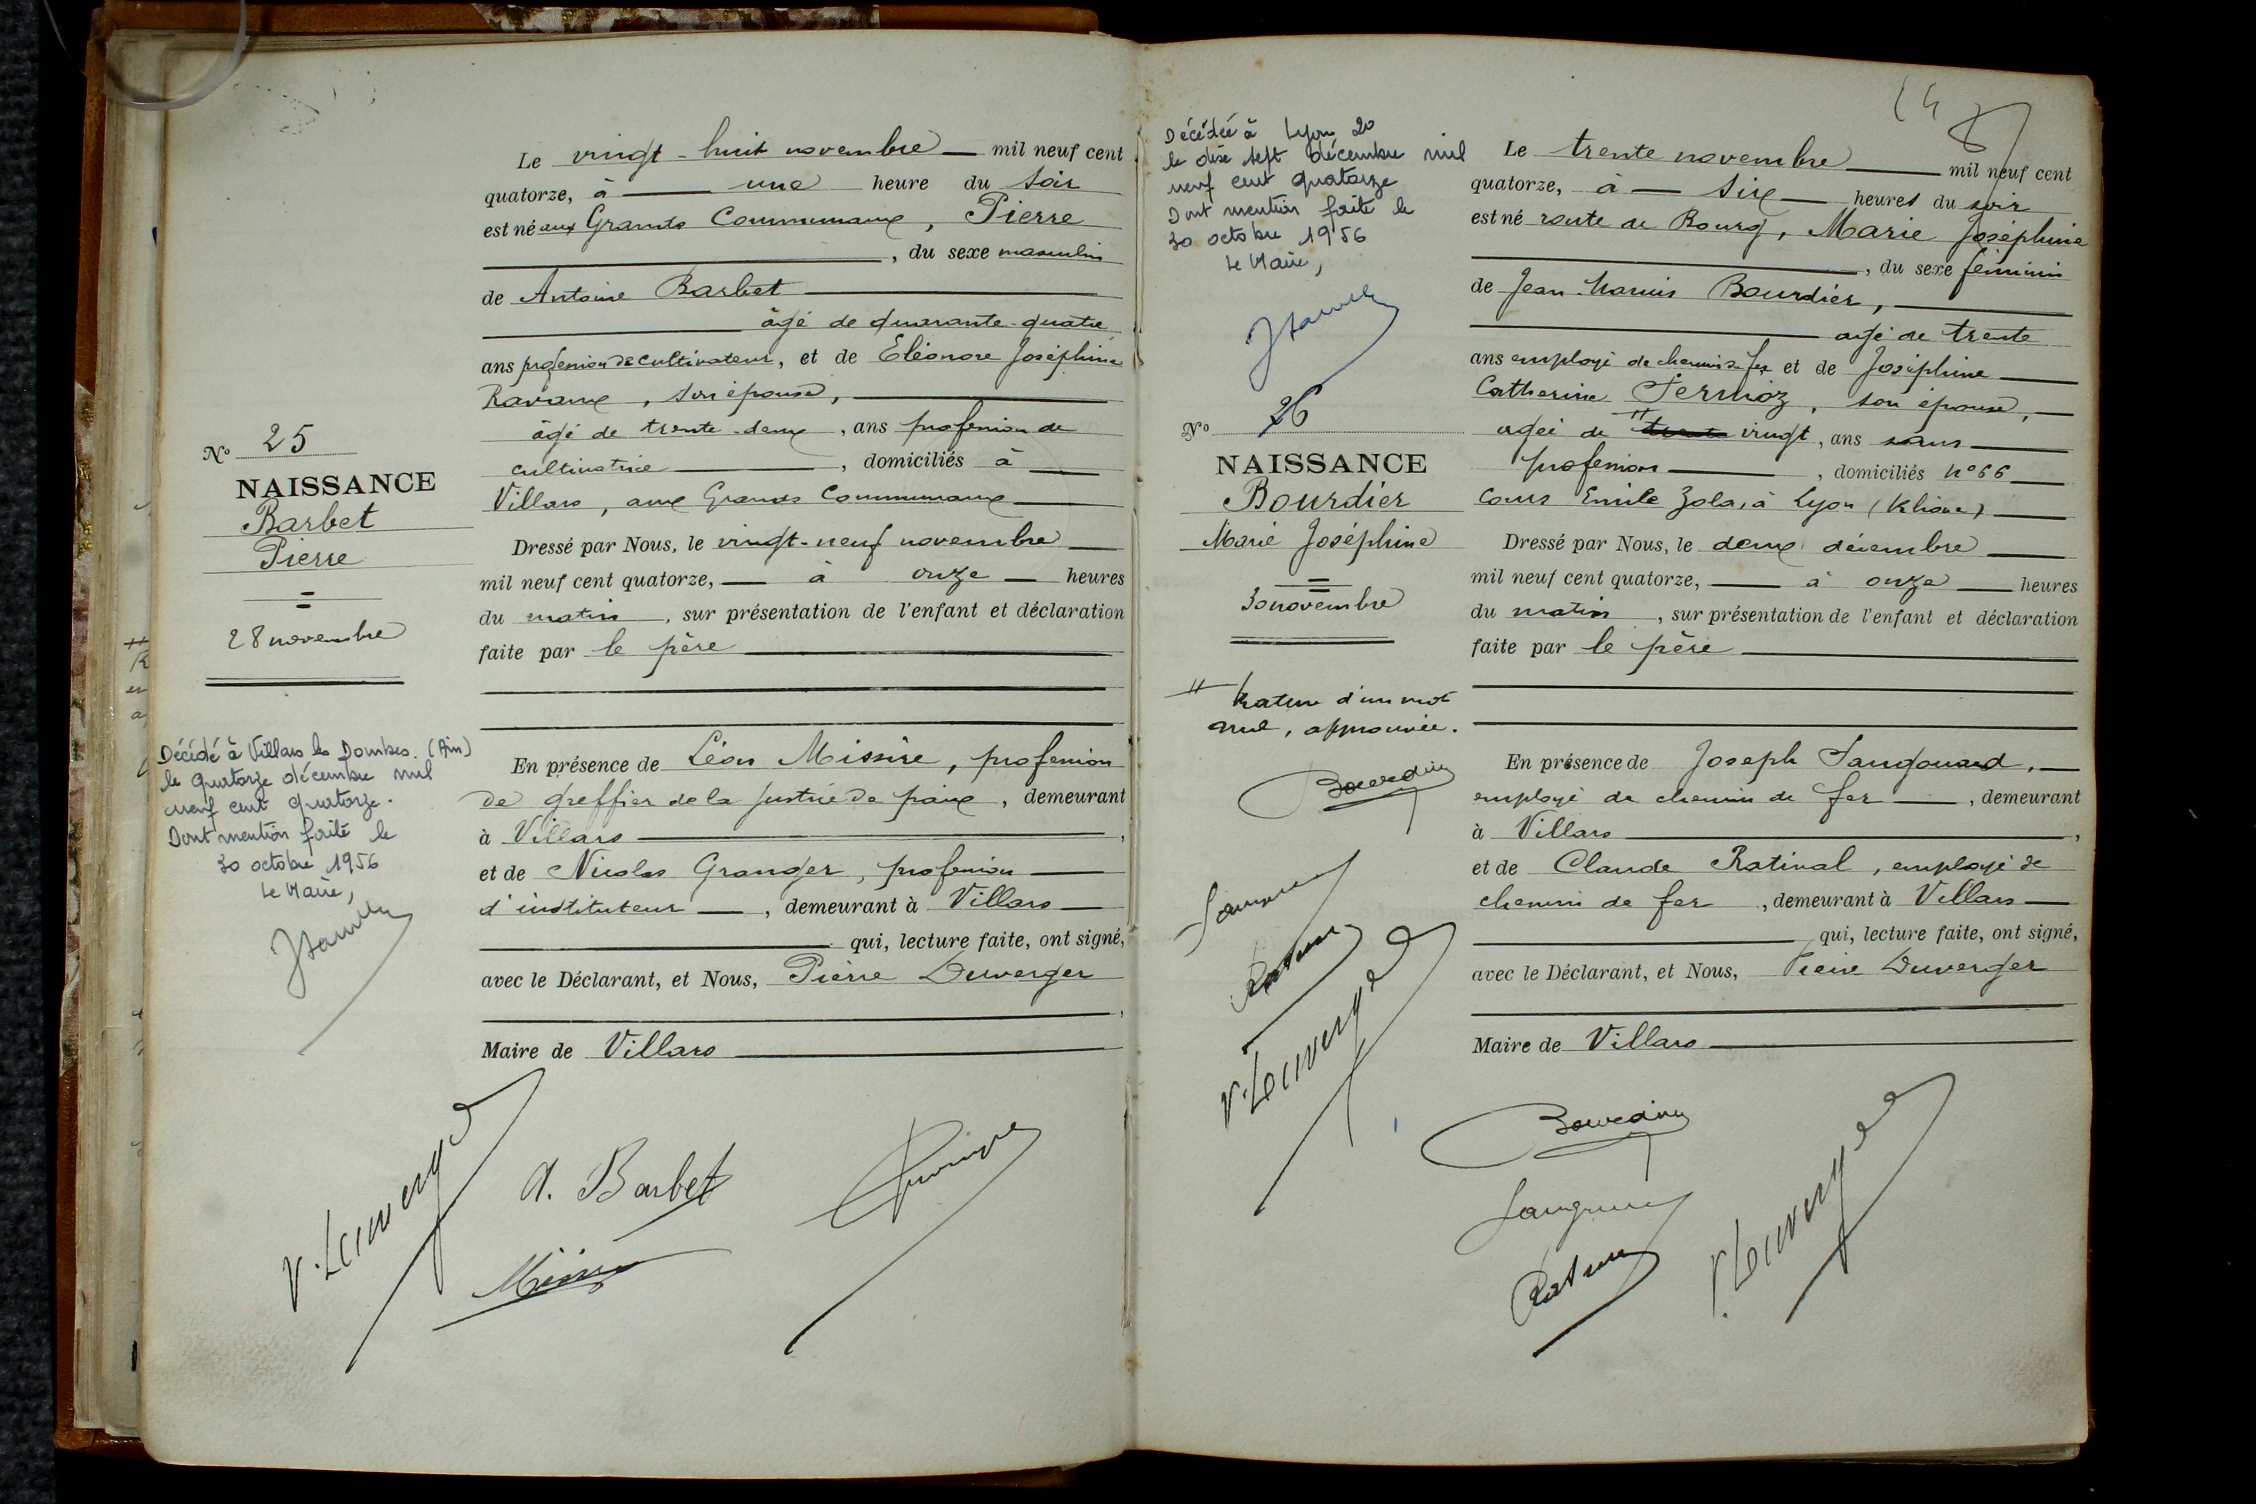 Le vingt-huit novembre mil neuf cent
quatorze, à une heure du soir
est né aux Grands Communaux, Pierre
, du sexe masculin
de Antoine Barbet
âgé de quarante-quatre
ans profession de cultivateur, et de Eléonore Joséphine
Ravaux, son épouse,
âgé de trente-deux, ans profession de
cultivatrice, domiciliés à
Villars, aux Grands Communaux
Dressé par Nous, le vingt-neuf novembre
mil neuf cent quatorze, à onze heures
du matin, sur présentation de l'enfant et déclaration
faite par le père
En présence de Léon Missire, profession
de greffier de la justice de paix, demeurant
à Villars,
et de Nicolas Granger, profession
d'instituteur, demeurant à Villars
qui, lecture faite, ont signé,
avec le Déclarant, et Nous, Pierre Duverger
,
Maire de Villars
A. Barbet
No 25
NAISSANCE
Barbet
Pierre
28 novembre
Décédé à Villars les Dombes (Ain)
le quatorze décembre mil
neuf cent quatorze.
Dont mention faite le
30 octobre 1956
Le Maire,
Décédée à Lyon 2o
le dix sept décembre mil
neuf cent quatorze
Dont mention faite le
30 octobre 1956
Le Maire,
No 26
NAISSANCE
Bourdier
Marie Joséphine
30 novembre
" Rature d'un mot
nul, approuvée.
Le trente novembre mil neuf cent
quatorze, à six heures du soir
est né route de Bourg, Marie Joséphine
, du sexe féminin
de Jean Marius Bourdier,
âgé de trente
ans employé de chemin de fer et de Joséphine
Catherine Sermoz, son épouse,
âgée de " trente vingt, ans sans
profession, domiciliés no 66
Cours Emile Zola, à Lyon (Rhône)
Dressé par Nous, le deux décembre
mil neuf cent quatorze, à onze heures
du matin, sur présentation de l'enfant et déclaration
faite par le père
En présence de Joseph Sangouard,
employé de chemin de fer, demeurant
à Villars,
et de Claude Rativat, employé de
chemin de fer, demeurant à Villars
qui, lecture faite, ont signé,
avec le Déclarant, et Nous, Pierre Duverger
Maire de Villars